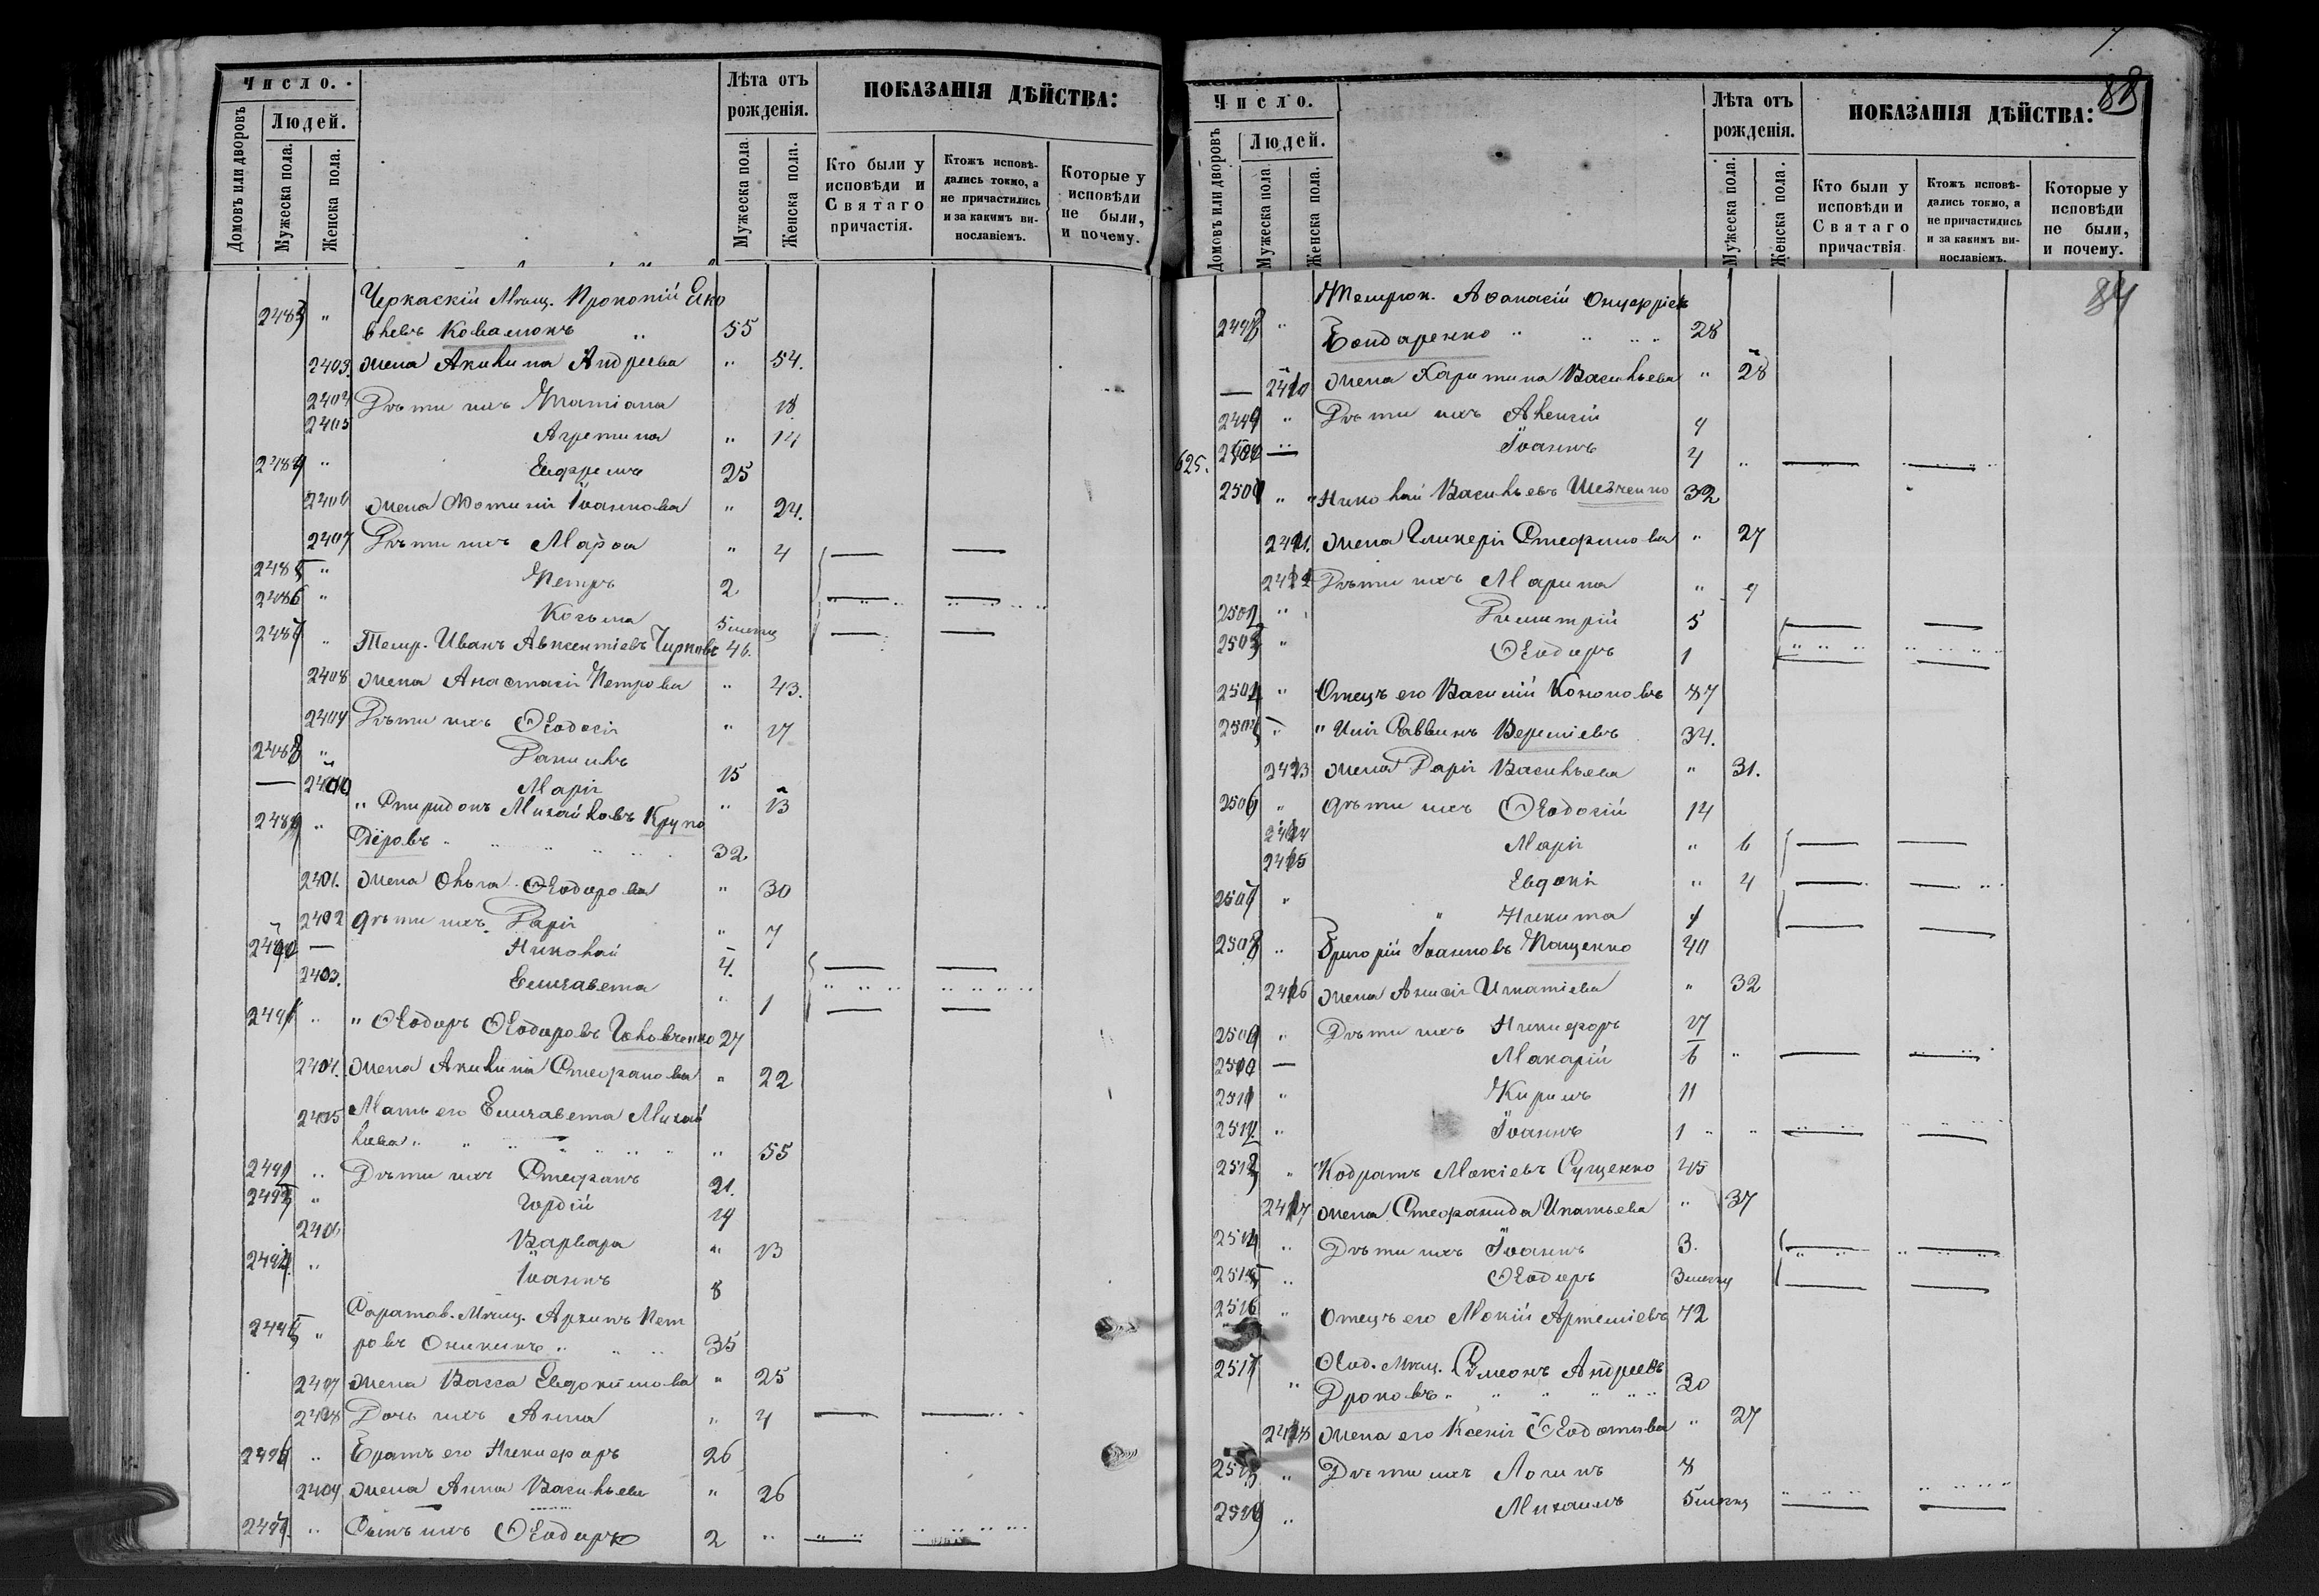 Число.
Людей.
Домовъ или дворовъ
Мужеска пола.
Женска пола.
Лѣта отъ
рожденія.
Мужеска пола
Женска пола.
ПОКАЗАНІЯ ДѢЙСТВА:
Кто были у
исповѣди и
Святаго
причастія.
Ктожъ исповѣ-
дались токмо, а
не причастились
и за какимъ ви-
нословіемъ.
Которые у
исповѣди
не были,
и почему.
2483 " Черкаскій Мѣщ. Прокопій
55
2403. жена Акилина Андреева " 54.
2404 Дѣти ихъ Татіана 18
2405 Агрипина " 14
2484 " Евфремъ 25
2406 жена Фотинія Іоаннова " 24.
2407 Дѣти ихъ Марфа " 4
2485 " Петръ 2
2486 " Козьма 5 месяц
2487 " Темр. Иванъ Авксентіевъ 46.
2408 жена Анастасія Петрова " 43.
2409 Дѣти ихъ Ѳеодосія " 17
2488 " Даніилъ 15
Марія " 13
2489 " " Спиридонъ Михайловъ Крупо
дёровъ 32
2401. жена Ольга Ѳеодорова " 30
2402 Дѣти ихъ Дарія " 7
Николай 4.
2403. Елисавета " 1
2491 " " Ѳеодоръ Ѳеодоровъ Головченко 27
2404. жена Акилина Стефанова " 22
2405 Мать его Елисавета Михай
лова " 55
Дѣти ихъ Стефанъ 21.
2493 " Гордій 14
2406 Варвара " 13
2494. " Іоаннъ 8
2495 " Саратов. Мѣщ. Архипъ Пет
ровъ Оникинъ 35
2407 жена Васса Евдокимова " 25
2408 Дочь ихъ Анна " 4
2496 " Братъ его Никифоръ 26
2409 жена Анна Васильева " 26
2497. " Сынъ ихъ Ѳеодоръ 2 "
Число.
Людей.
Домовъ или дворовъ
Мужеска пола
Женска пола.
Лѣта отъ
рожденія.
Мужеска пола.
Женска пола.
ПОКАЗАНІЯ ДѢЙСТВА:
Кто были у
исповѣди и
Святаго
причастія
Ктожъ исповѣ-
дались токмо, а
не причастились
и за какимъ ви-
нословіемъ.
Которые у
исповѣди
не были,
и почему.
88
84
2498 " Темрюк. Аѳанасій Онуфріевъ
Бондаренко 28
2410 жена Харитина Васильева " 28
2499 " Дѣти ихъ Алексій
625. Іоаннъ 4 "
2501 " " Николай Васильевъ Шевченко 32
2421. жена Гликерія Стефанова " 27
2422 Дѣти ихъ Марина " 9
2502 " Димитрій 5
2503 " Ѳеодоръ 1
2504 " Отецъ его Василій Кононовъ 87
2505 " Саввинъ Веремієвъ 34.
2423 жена Дарія Васильева " 31.
2506 " Дѣти ихъ Ѳеодосій 14
2424 Марія " 6
2425 Евдокія " 4
2507 " Никита
2508 " Григорій Іоанновъ Пащенко 40
2426 жена Анисія Игнатіева " 32
2509 " Дѣти ихъ Никифоръ 17
2510 Макарій 6 "
2511 " Кирилъ 11
2512. " Іоаннъ 1 "
2513 " Кодратъ Мокіевъ Сущенко 45
2427 жена Стефанида Ипатьева " 37
2514 " Дѣти ихъ Іоаннъ 3.
2515 " Ѳеодоръ 3 месяц
2516 " Отецъ его Мокій Артеміевъ 72
2517 " Ѳеод. Мѣщ. Симеонъ Андреевъ
Дроновъ 30
2428 жена его Ксенія Ѳеодотова " 27
2518 " Дѣти ихъ Логинъ 8
2519 " Михаилъ 5 месяц